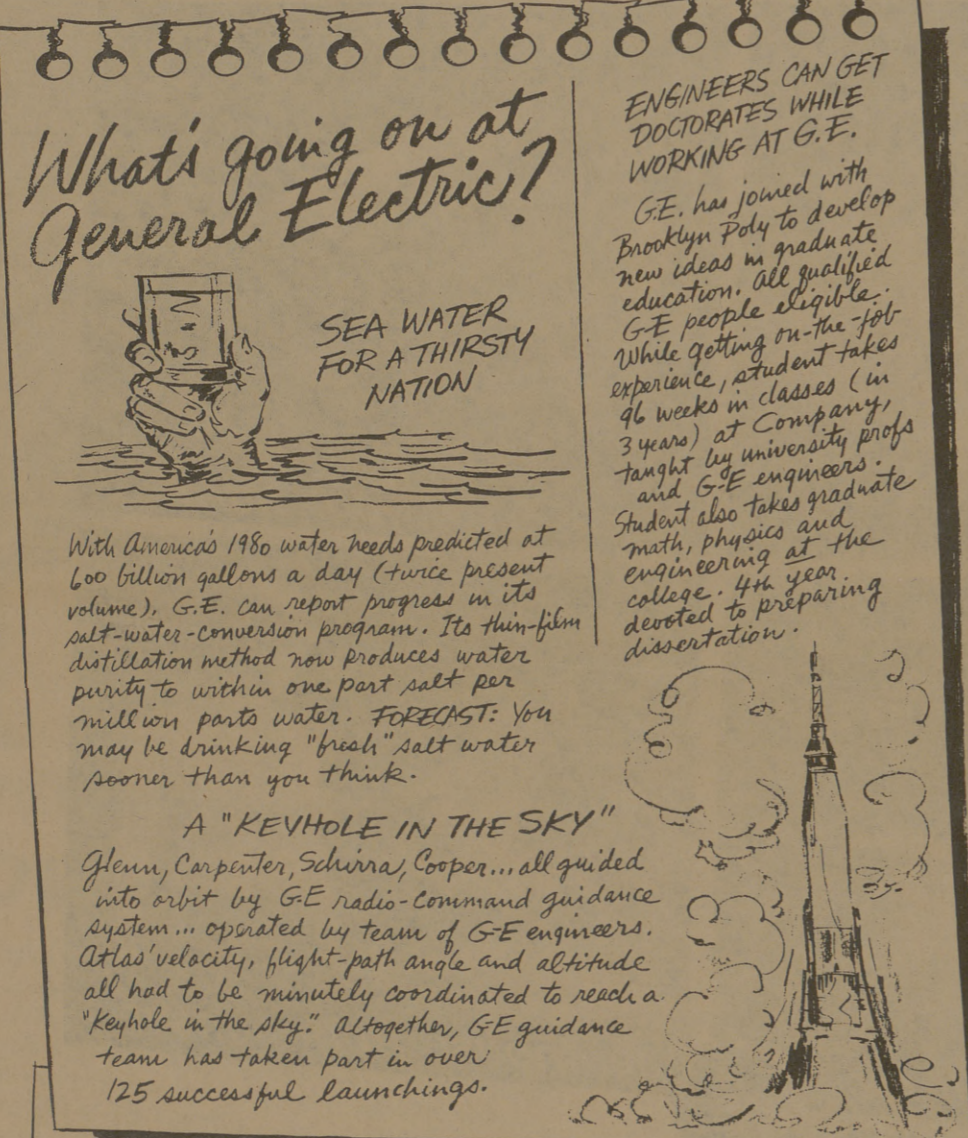 What's going on at
General Electric?
SEA WATER
FOR A THIRSTY
NATION
With America's 1980 water needs predicted at
600 billion gallons a day (twice present
volume), G.E. can report progress in its
salt-water-conversion program. Its thin-film
distillation method now produces water
purity to within one part salt per
million parts water. FORECAST: You
may be drinking "fresh" salt water
sooner than you think.
A "KEYHOLE IN THE SKY"
Glenn, Carpenter, Schirra, Cooper... all guided
into orbit by G-E radio-command guidance
system... operated by team of G-E engineers.
Atlas' velocity, flight-path angle and altitude
all had to be minutely coordinated to reach a
"Keyhole in the sky." Altogether, G-E guidance
team has taken part in over
125 successful launchings.
ENGINEERS CAN GET
DOCTORATES WHILE
WORKING AT G.E.
G.E. has joined with
Brooklyn Poly to develop
new ideas in graduate
education. All qualified
G-E people eligible.
While getting on-the-job
experience, student takes
96 weeks in classes (in
3 years) at Company,
taught by university profs
and G-E engineers.
Student also takes graduate
math, physics and
engineering at the
college. 4th year
devoted to preparing
dissertation.